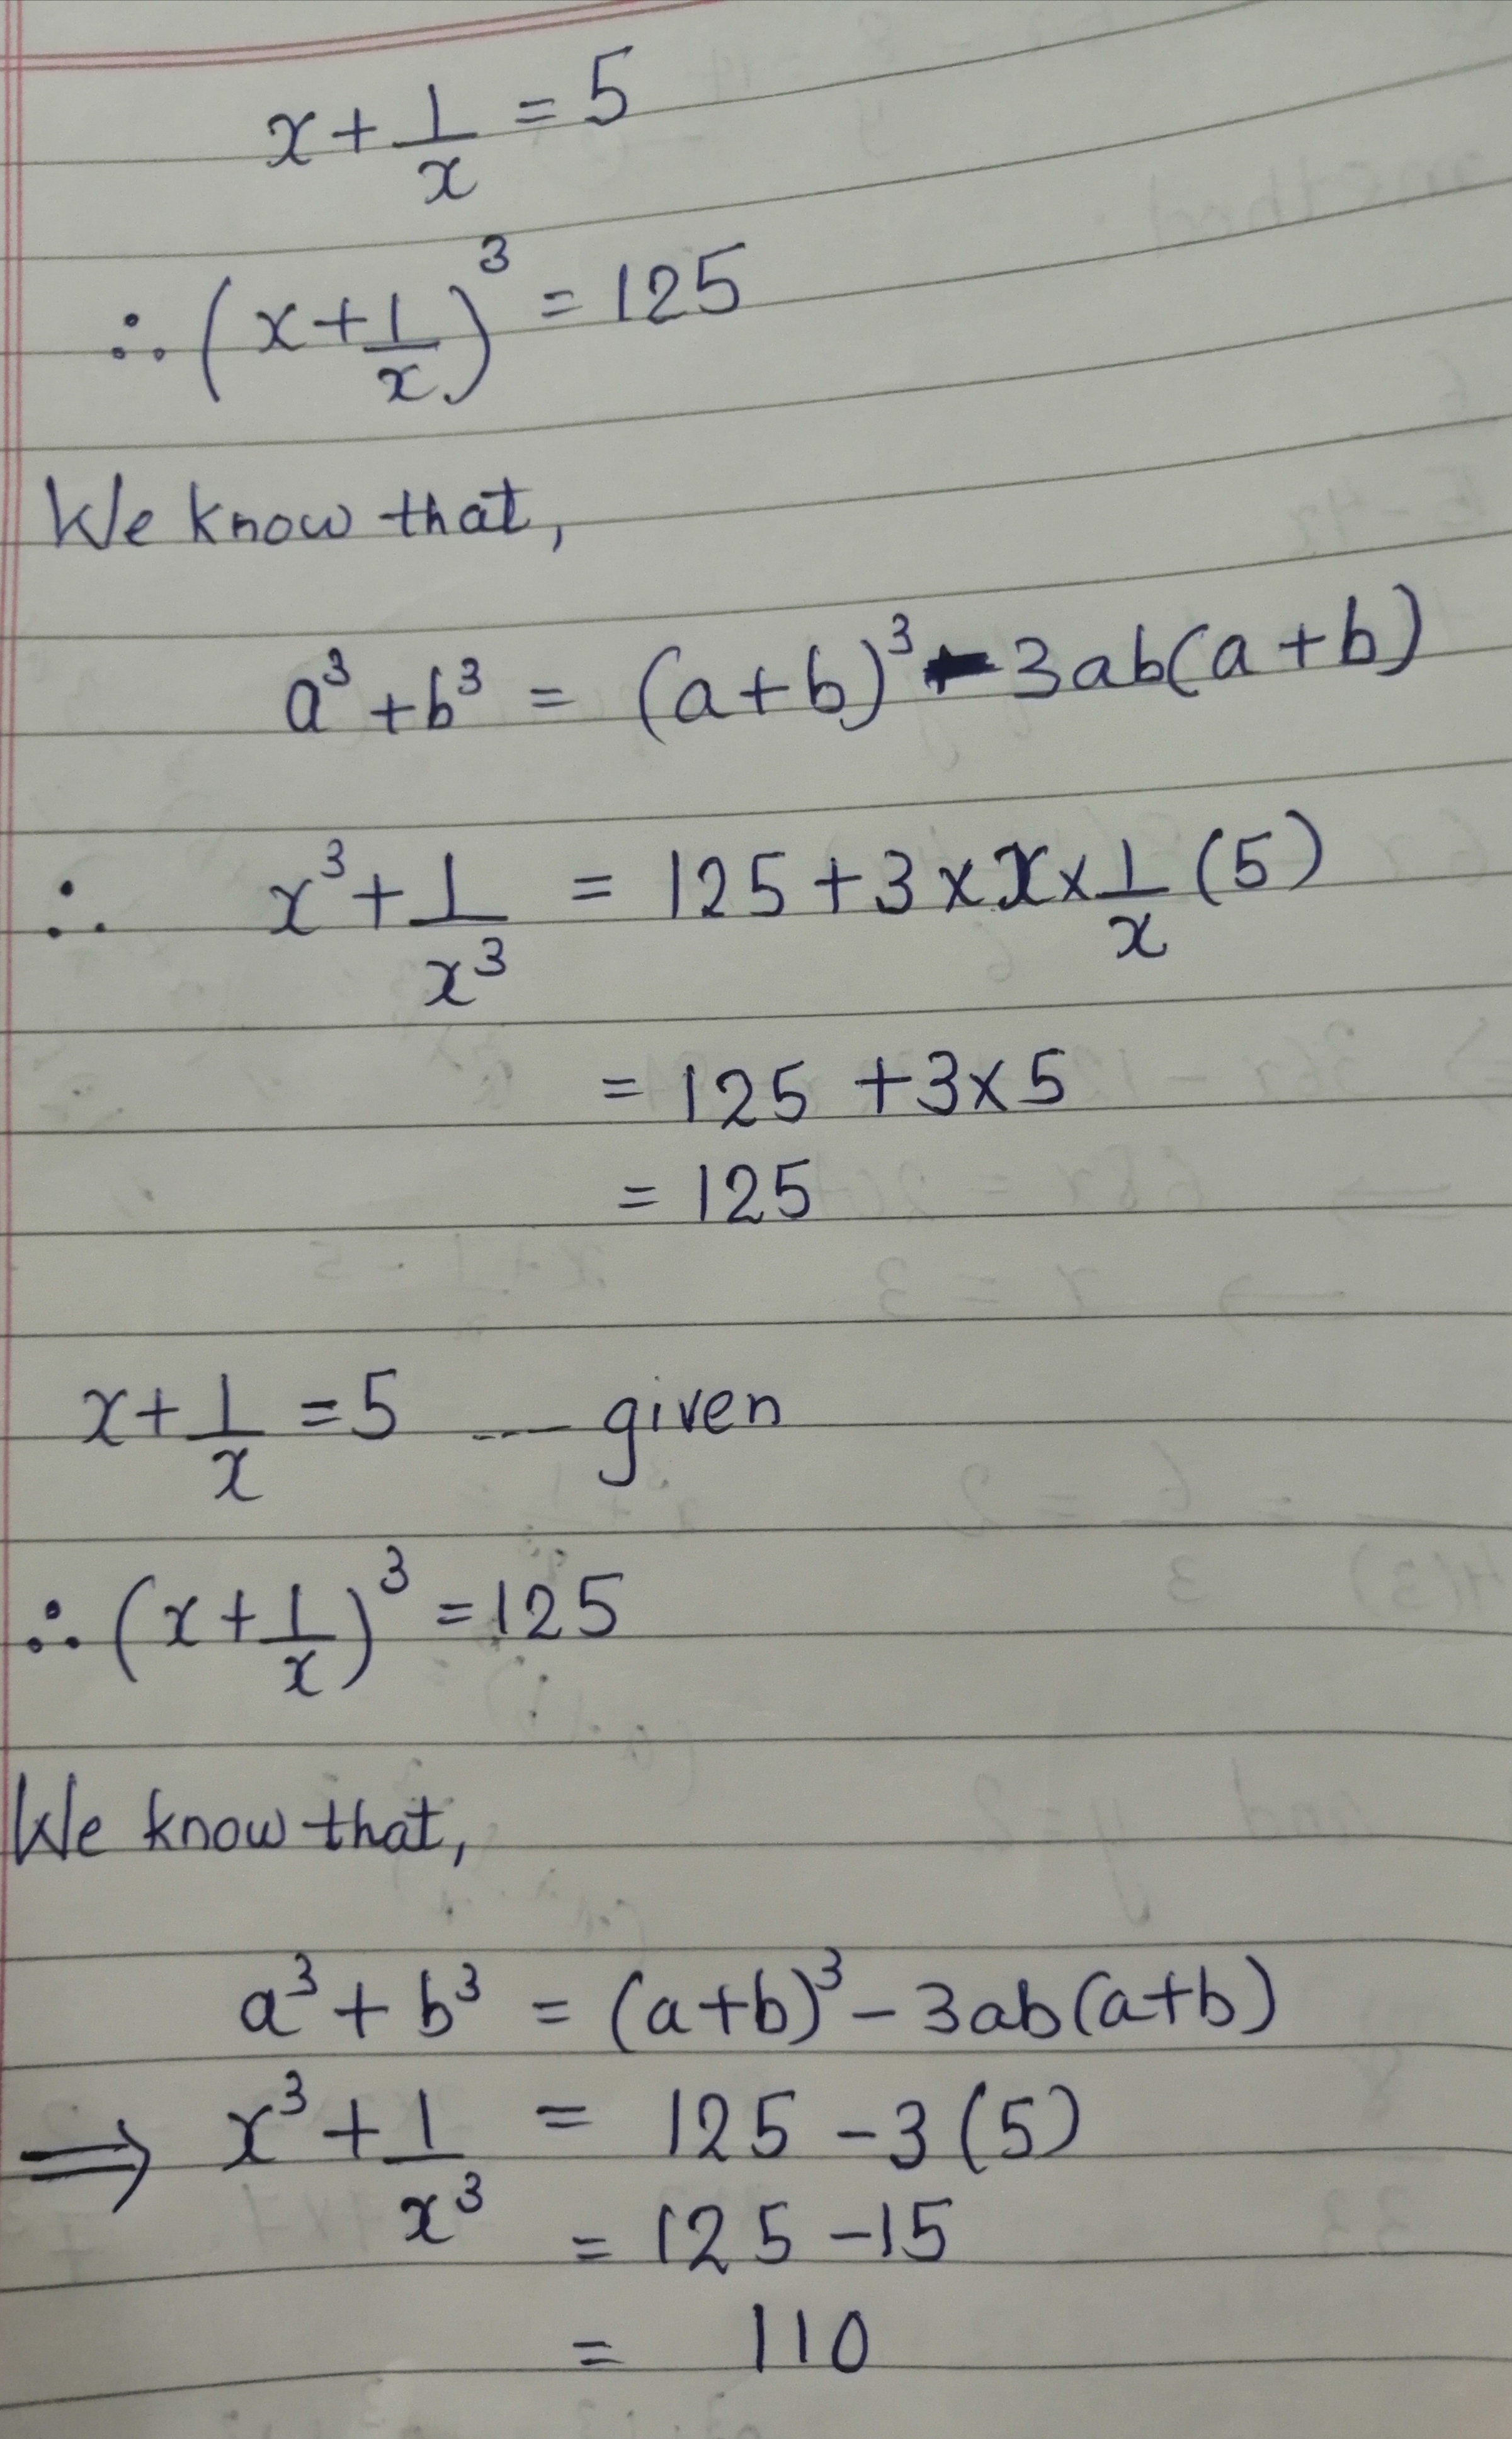 x + 1/x = 5
∴ (x + 1/x)³ = 125
We know that,
a³ + b³ = (a+b)³ - 3ab(a+b)
∴ x³ + 1/x³ = 125 + 3 × x × 1/x (5)
= 125 + 3×5
= 125
x + 1/x = 5 --- given
∴ (x + 1/x)³ = 125
We know that,
a³ + b³ = (a+b)³ - 3ab(a+b)
⟹ x³ + 1/x³ = 125 - 3(5)
= 125 - 15
= 110